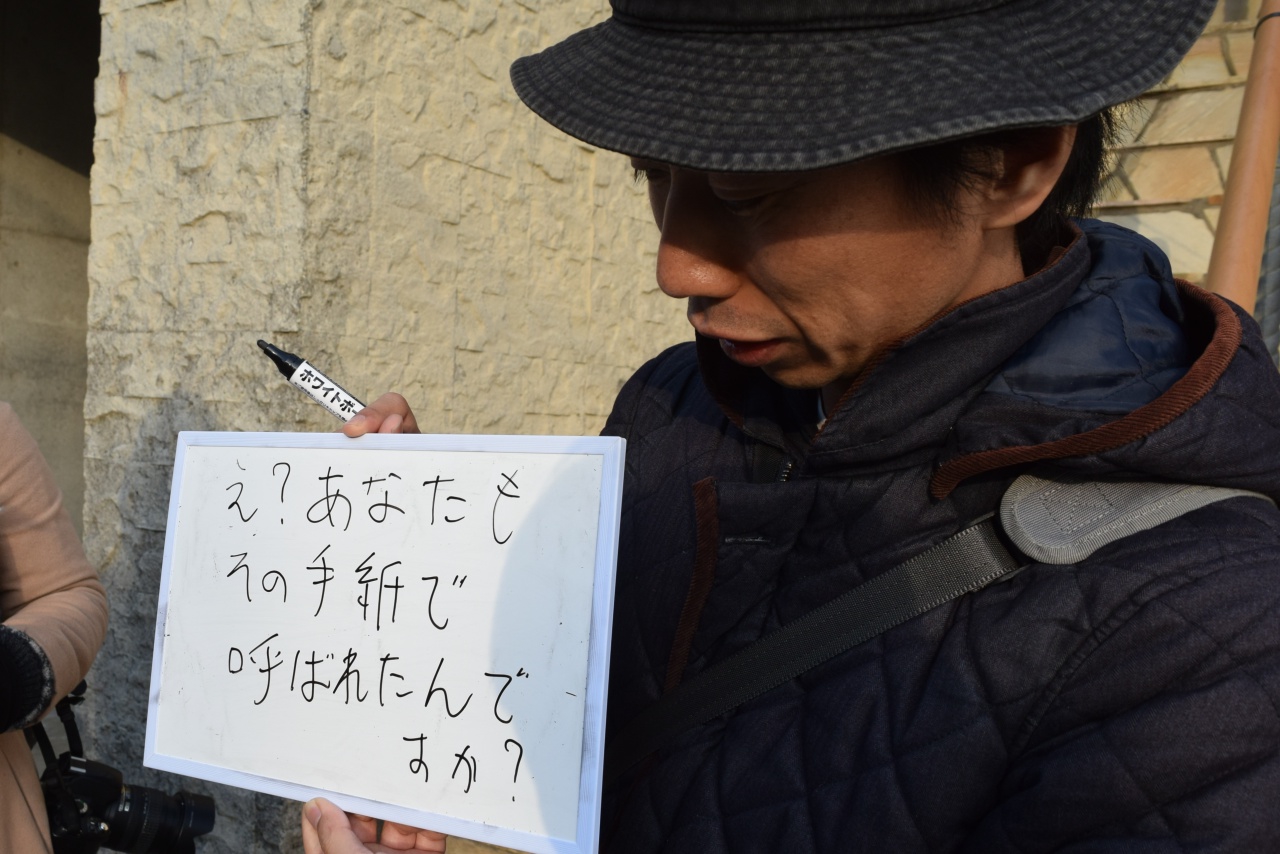 ホワイトボー
え?あなたも
その手紙で
呼ばれたんで
すか?